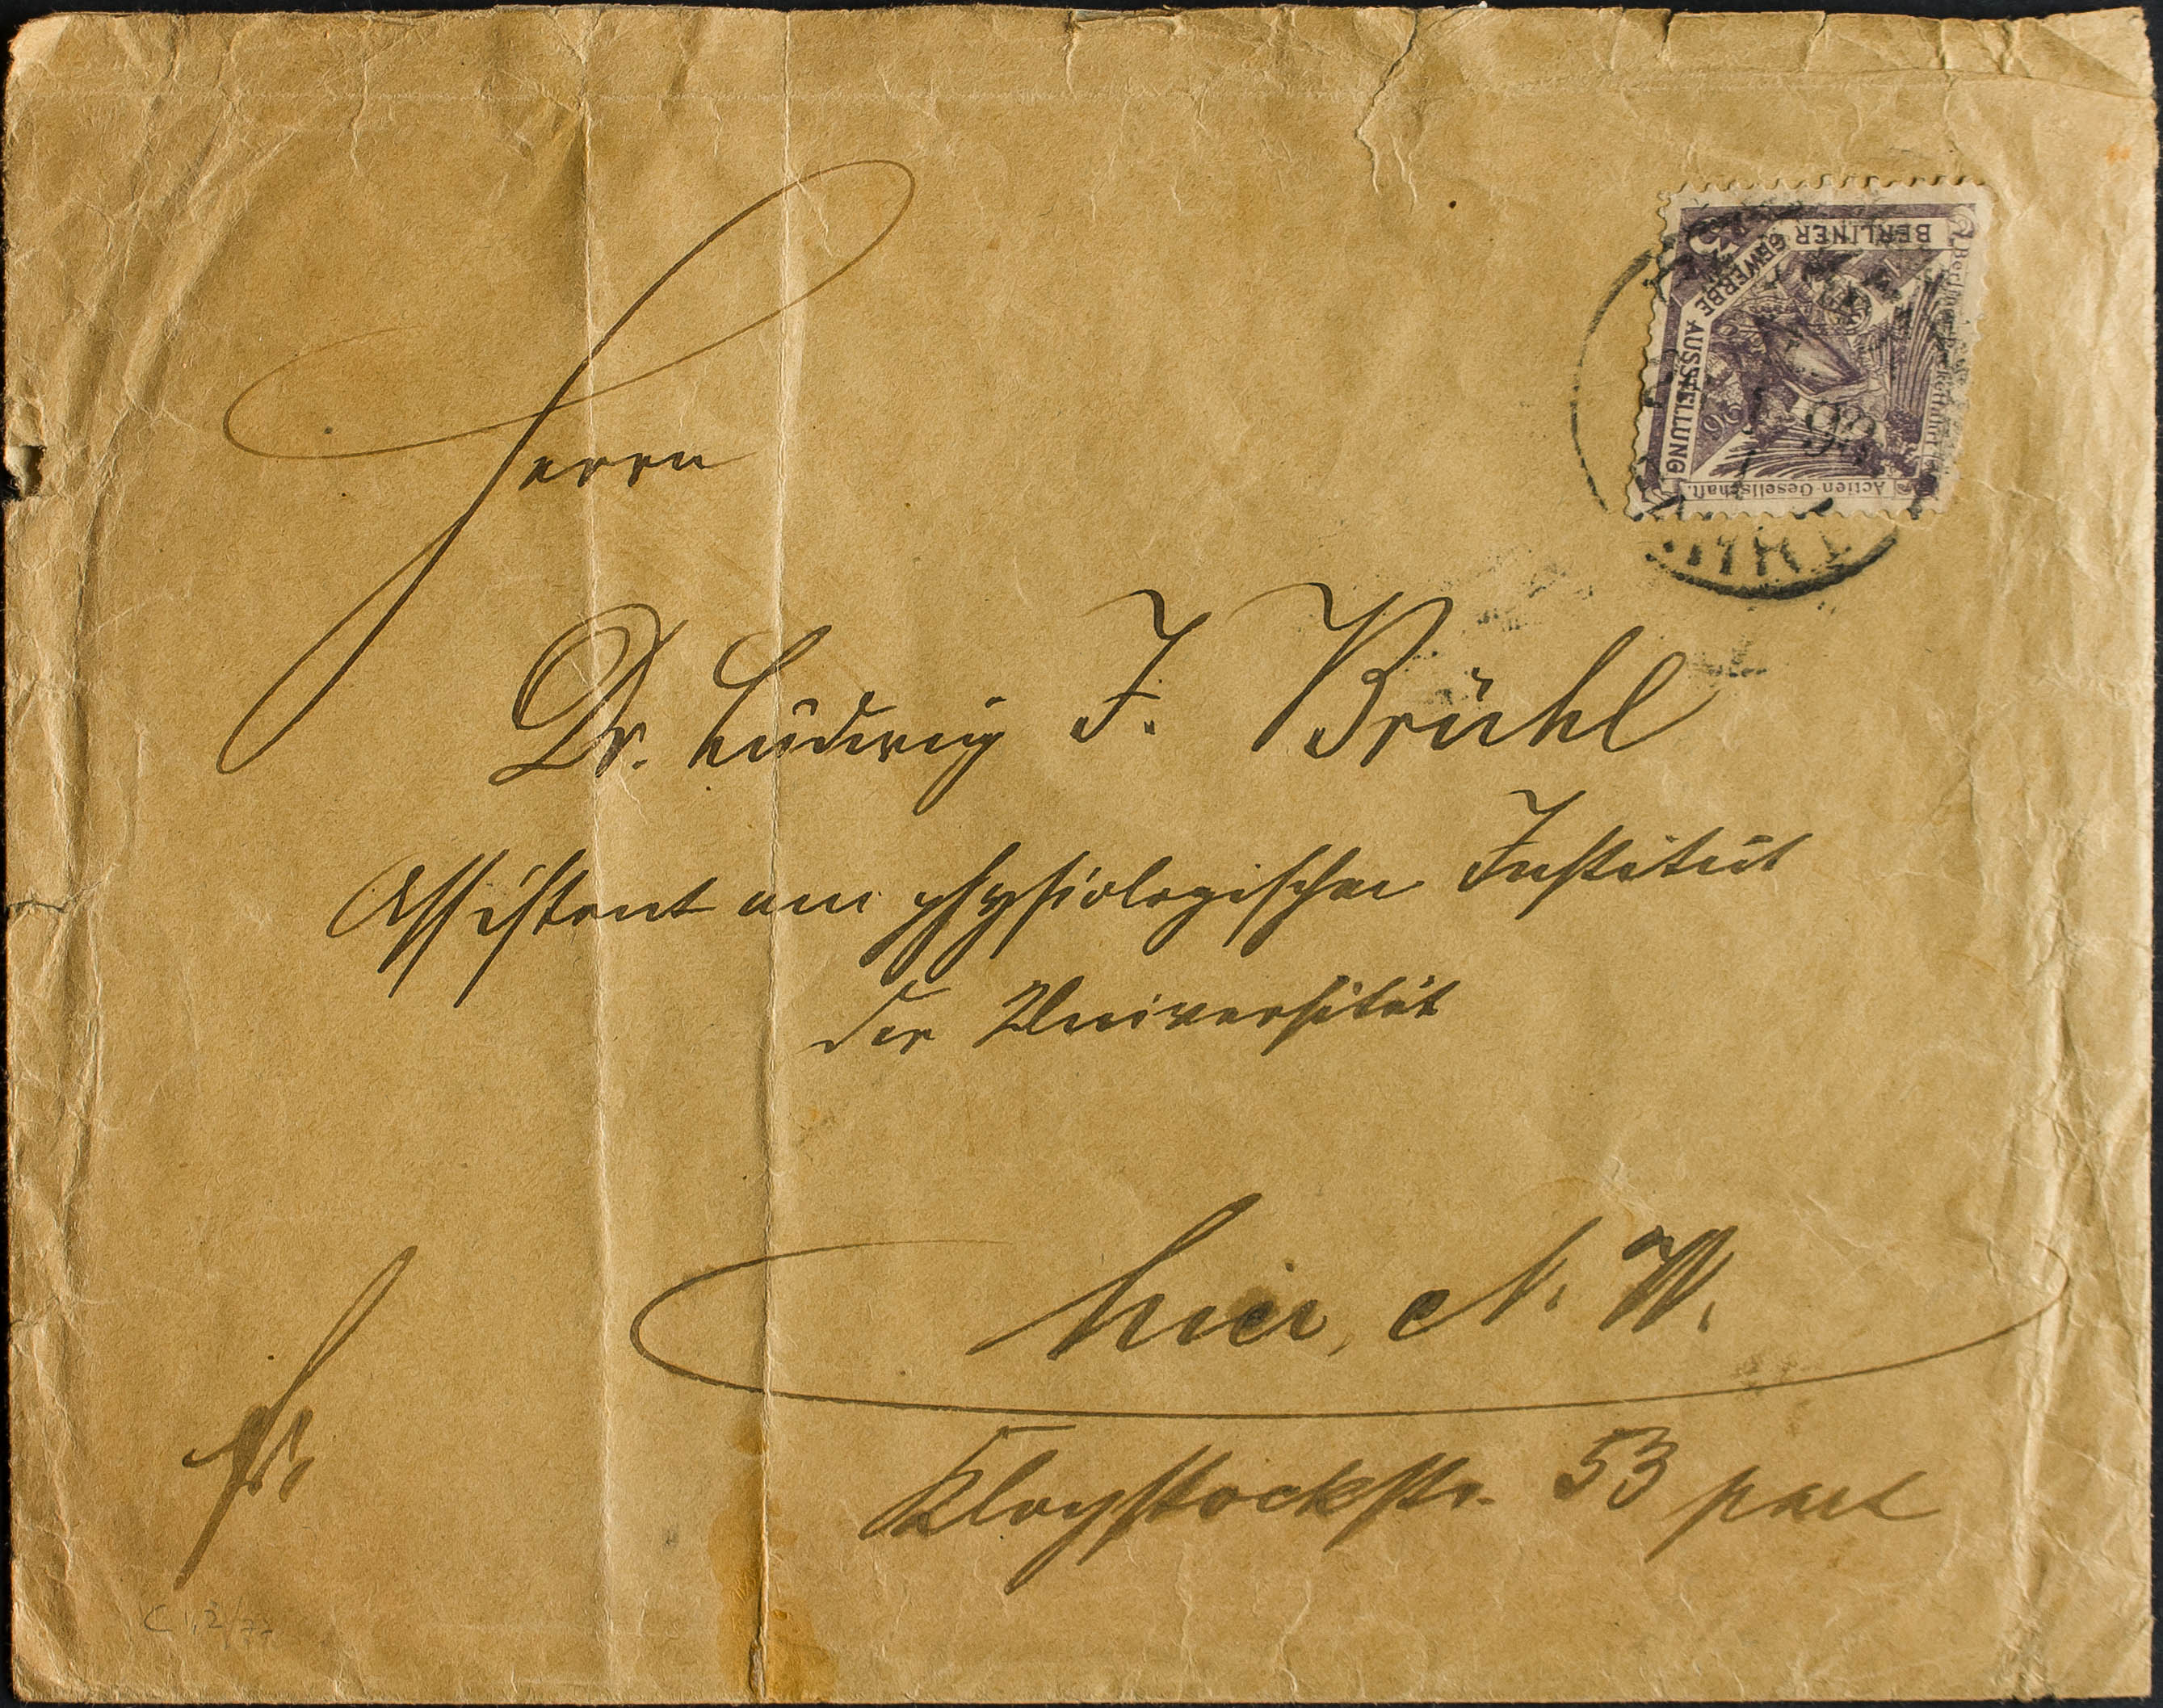 BERLINER
GEWERBE AUSSTELLUNG
96
Actien Gesellschaft.
Herrn
Dr. Ludwig J. Brühl
Assistent am physiologischen Institut
der Universität
hier, N. W.
Klopstockstr. 53 part